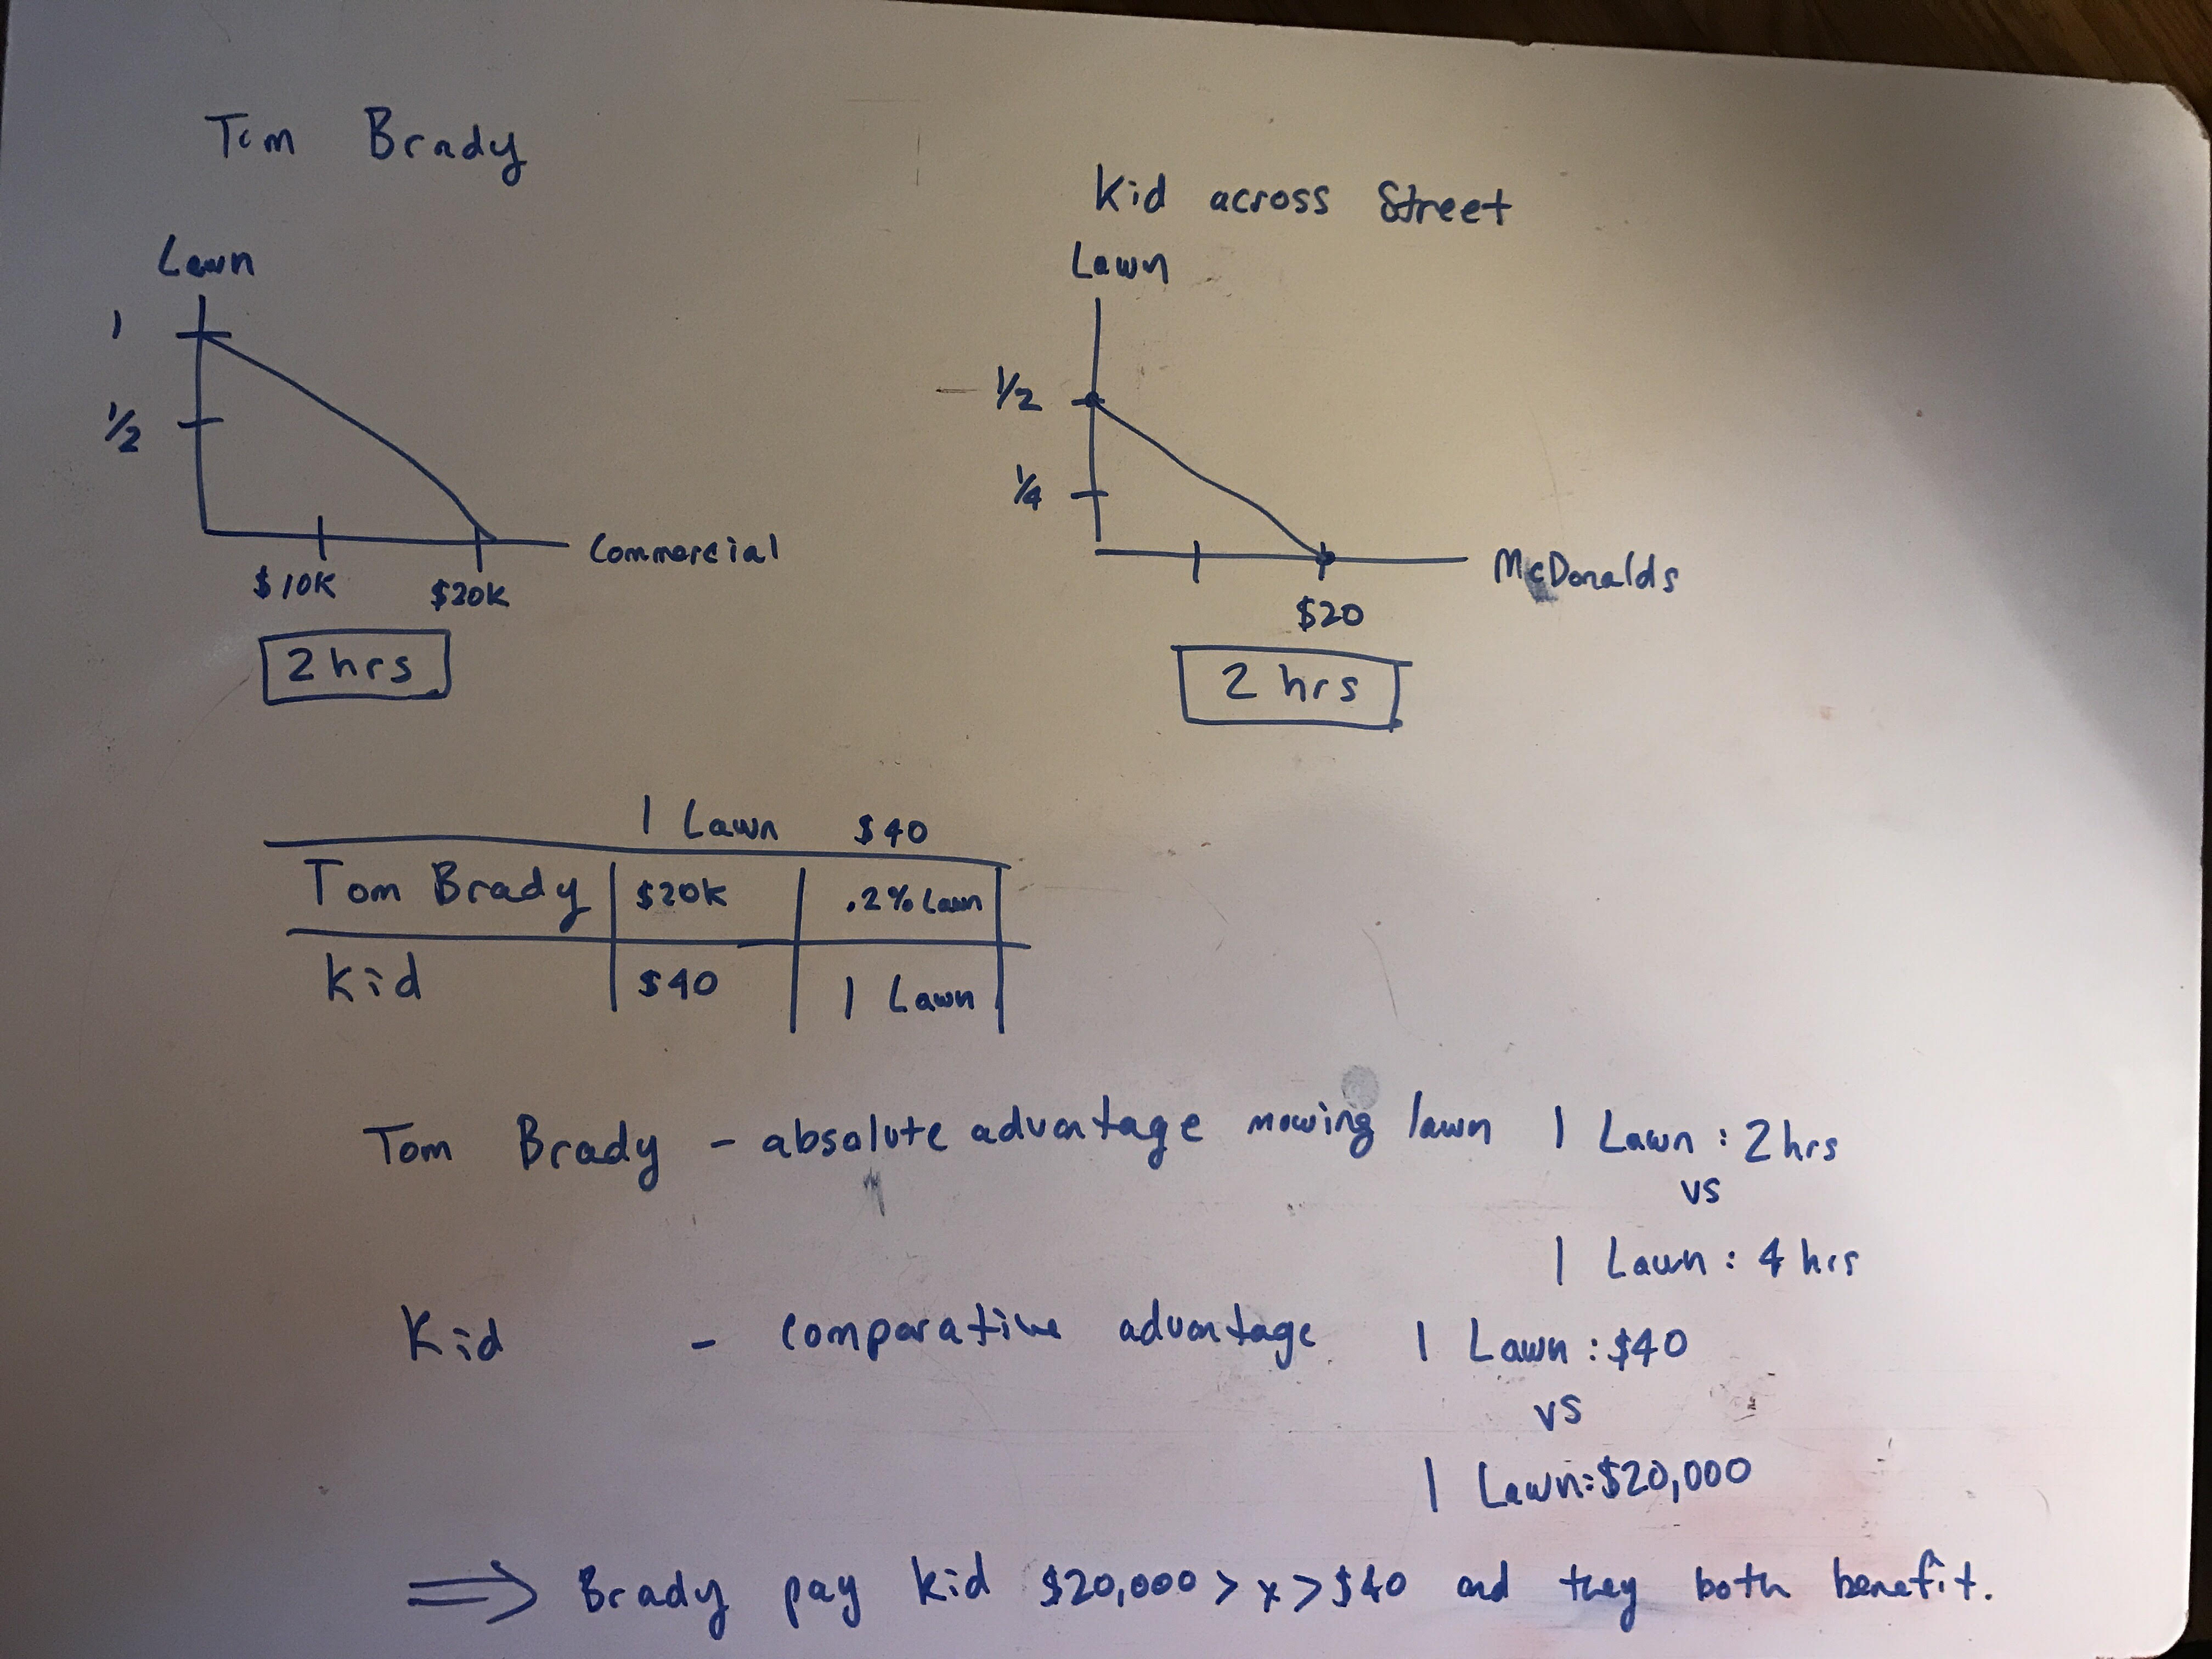 Tom Brady
Lawn
1
1/2
$10K
$20K
Commercial
2 hrs
Kid across Street
Lawn
1/2
1/4
$20
McDonalds
2 hrs
1 Lawn $40
Tom Brady $20K .2% Lawn
Kid $40 1 Lawn
Tom Brady - absolute advantage mowing lawn 1 Lawn : 2 hrs
vs
1 Lawn : 4 hrs
Kid - comparative advantage 1 Lawn : $40
vs
1 Lawn : $20,000
⟹ Brady pay kid $20,000 > x > $40 and they both benefit.